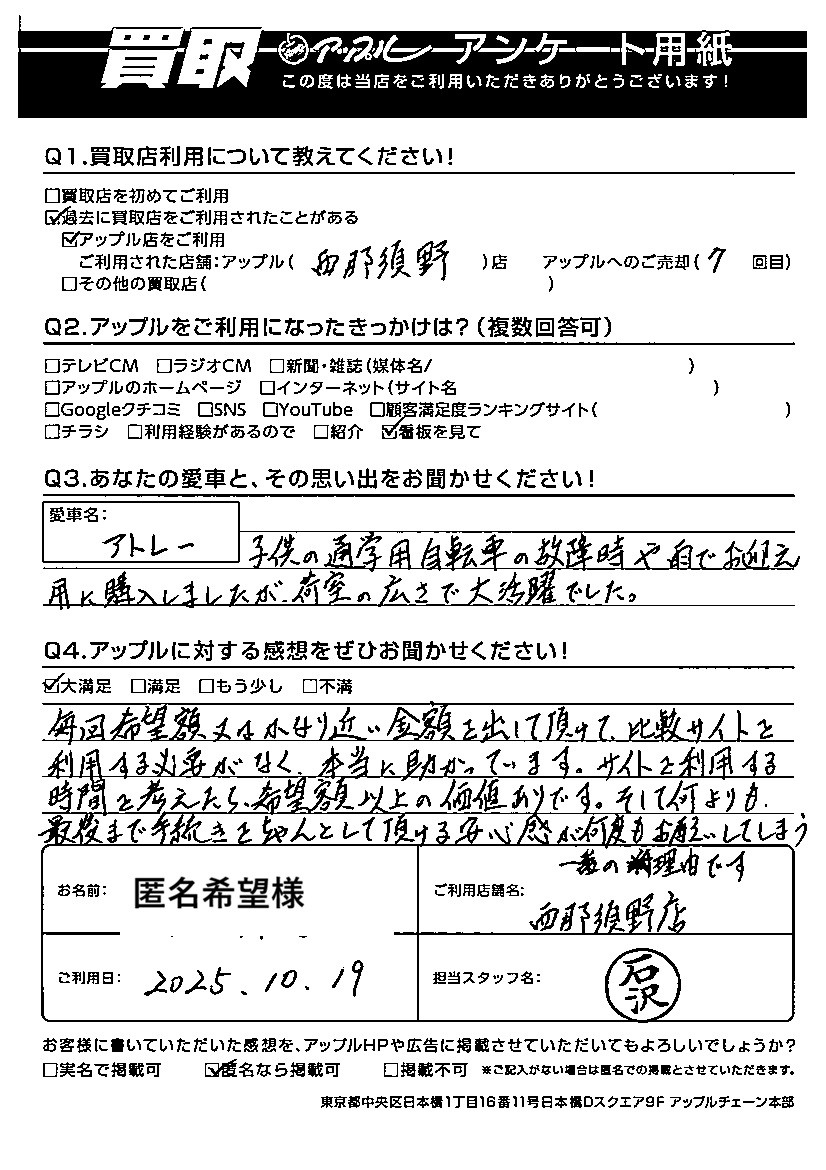 買取 アップル アンケート用紙
この度は当店をご利用いただきありがとうございます!
Q1.買取店利用について教えてください!
□買取店を初めてご利用
☑過去に買取店をご利用されたことがある
☑アップル店をご利用
ご利用された店舗:アップル( 西那須野 )店 アップルへのご売却( 7 回目)
□その他の買取店( )
Q2.アップルをご利用になったきっかけは?(複数回答可)
□テレビCM □ラジオCM □新聞・雑誌(媒体名/ )
□アップルのホームページ □インターネット(サイト名 )
□Googleクチコミ □SNS □YouTube □顧客満足度ランキングサイト( )
□チラシ □利用経験があるので □紹介 ☑看板を見て
Q3.あなたの愛車と、その思い出をお聞かせください!
愛車名:
アトレー
子供の通学用自転車の故障時や雨でお迎え
用に購入しましたが、荷室の広さで大活躍でした。
Q4.アップルに対する感想をぜひお聞かせください!
☑大満足 □満足 □もう少し □不満
毎回希望額又はかなり近い金額を出して頂けて、比較サイトを
利用する必要がなく、本当に助かっています。サイトを利用する
時間を考えたら、希望額以上の価値ありです。そして何よりも、
最後まで手続きをちゃんとして頂ける安心感が何度もお願いしてしまう
一番の理由です
お名前: 匿名希望様
ご利用店舗名: 西那須野店
ご利用日: 2025.10.19
担当スタッフ名: 石沢
お客様に書いていただいた感想を、アップルHPや広告に掲載させていただいてもよろしいでしょうか?
□実名で掲載可 ☑匿名なら掲載可 □掲載不可 ※ご記入がない場合は匿名での掲載とさせていただきます。
東京都中央区日本橋1丁目16番11号日本橋Dスクエア9F アップルチェーン本部